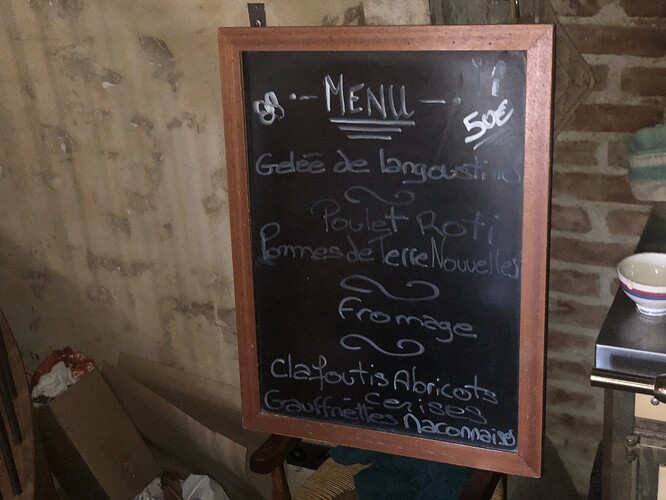 MENU
50€
Gelée de langoustines
Poulet Roti
Pommes de Terre Nouvelles
Fromage
Clafoutis Abricots
Cerises
Gauffriettes Maconnaises